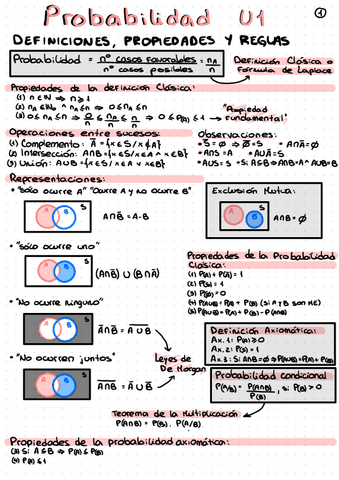 Probabilidad U1
1
DEFINICIONES, PROPIEDADES Y REGLAS
Probabilidad = nº casos favorables / nº casos posibles = nA / n
Definición Clásica o Fórmula de Laplace
Propiedades de la definición Clásica:
(1) n ∈ N ⇒ n ≥ 1
(2) nA ∈ N₀ ∧ nA ≤ n ⇒ 0 ≤ nA ≤ n
(3) 0 ≤ nA ≤ n ⇒ 0/n ≤ nA/n ≤ n/n ⇒ 0 ≤ P(A) ≤ 1 →
"Propiedad fundamental"
Operaciones entre sucesos:
(1) Complemento: A̅ = {x ∈ S / x ∉ A}
(2) Intersección: A∩B = {x ∈ S / x ∈ A ∧ x ∈ B}
(3) Unión: A∪B = {x ∈ S / x ∈ A ∨ x ∈ B}
Observaciones:
• S̅ = ∅ ⇒ ∅̅ = S • A∩A̅ = ∅
• A∩S = A • A∪A̅ = S
• A∪S = S
Representaciones:
• "Sólo ocurre A" "Ocurre A y no ocurre B"
A B S
A∩B̅ = A-B
Exclusión Mutua:
A B S
A∩B = ∅
• "Sólo ocurre uno"
A B S
(A∩B̅) ∪ (B∩A̅)
Propiedades de la Probabilidad Clásica:
(1) P(A) + P(A̅) = 1
(2) P(S) = 1
(3) P(∅) = 0
(4) P(A∪B) = P(A) + P(B) (si A y B son ME)
(5) P(A∪B) = P(A) + P(B) - P(A∩B)
• "No ocurre ninguno"
A B S
A̅∩B̅ = A̅∪̅B̅
Definición Axiomática:
Ax. 1: P(A) ≥ 0
Ax. 2: P(S) = 1
Ax. 3: Si A∩B = ∅ ⇒ P(A∪B) = P(A) + P(B)
• "No ocurren juntos"
A B S
A̅∩̅B̅ = A̅∪B̅
Leyes de De Morgan
Probabilidad condicional
P(A/B) = P(A∩B) / P(B), si P(B) > 0
Teorema de la Multiplicación
P(A∩B) = P(B) . P(A/B)
Propiedades de la probabilidad axiomática:
(3) Si A ⊆ B ⇒ P(A) ≤ P(B)
(4) P(A) ≤ 1